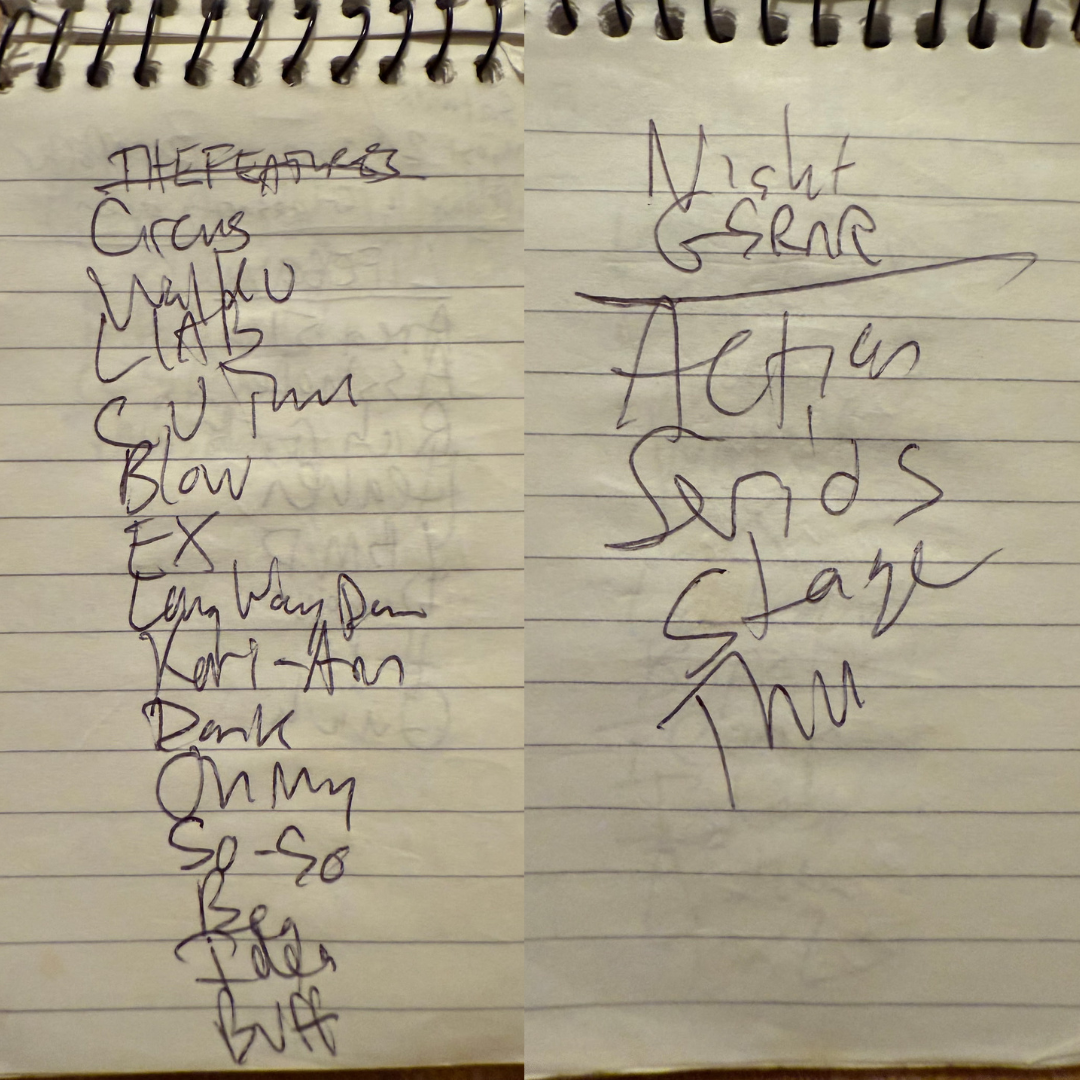 THE FEATURES
Circus
Walk U
LIAB
S.U Thru
Blow
EX
Long Way Down
Kari-Ann
Dark
Oh My
So-So
Beg
Idea
Buff
Night
GSRNR
Action
Sends
Stage
Thru